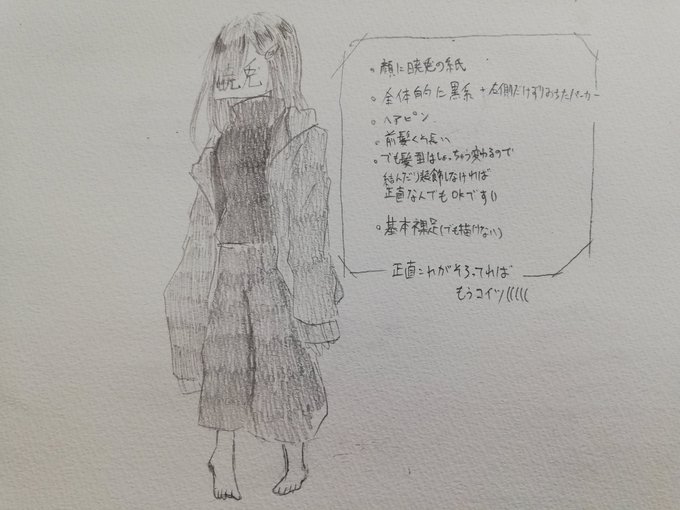 暁兎
。顔に暁兎の紙
。全体的に黒系 + 左側だけずりおちたパーカー
。ヘアピン
。前髪くそ長い
。でも髪型はしょっちゅう変わるので
結んだり装飾しなければ
正直なんでもOKです()
。基本裸足(でも描けない)
正直これがそろってれば
もうコイツ(((((